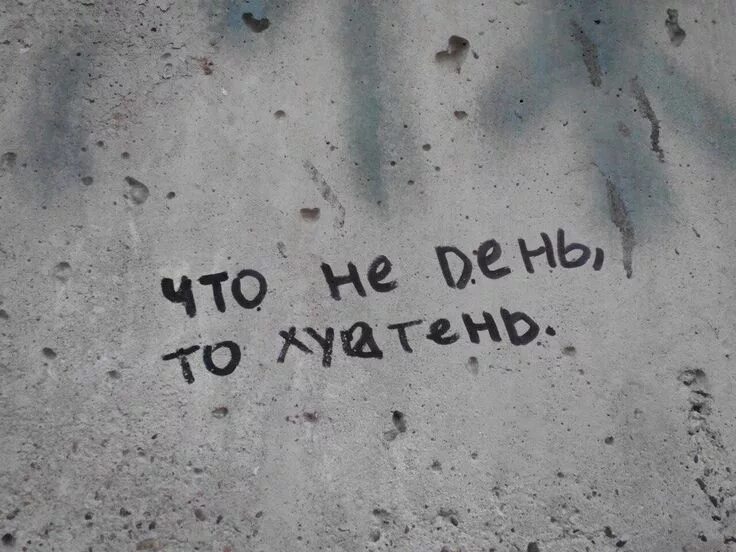 что не день,
то хуетень.